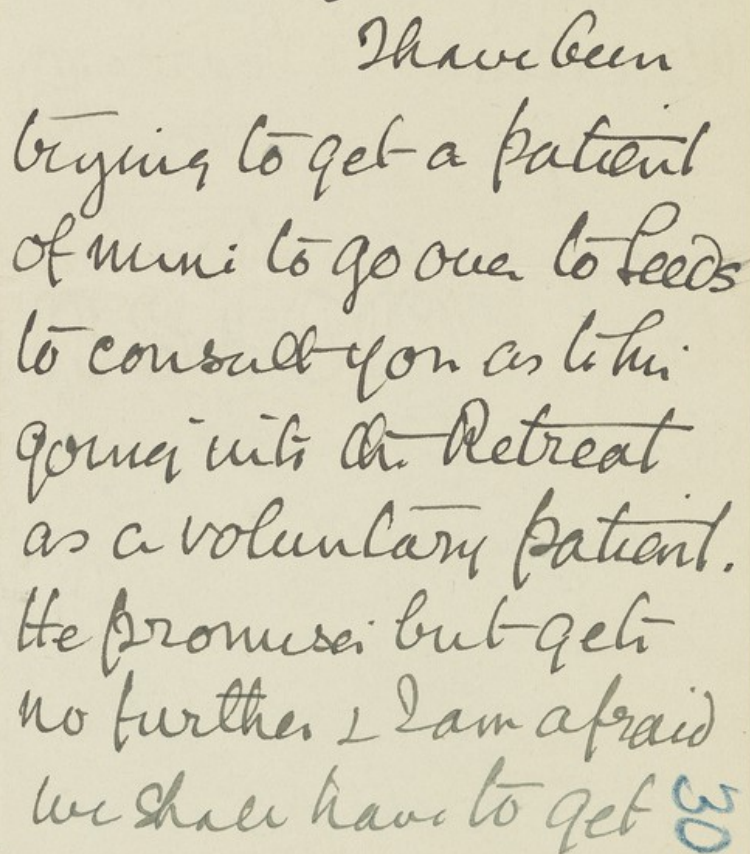 I have been
trying to get a patient
of mine to go over to Leeds
to consult you as to his
going into the Retreat
as a voluntary patient.
He promises but gets
no further & I am afraid
we shall have to get
30